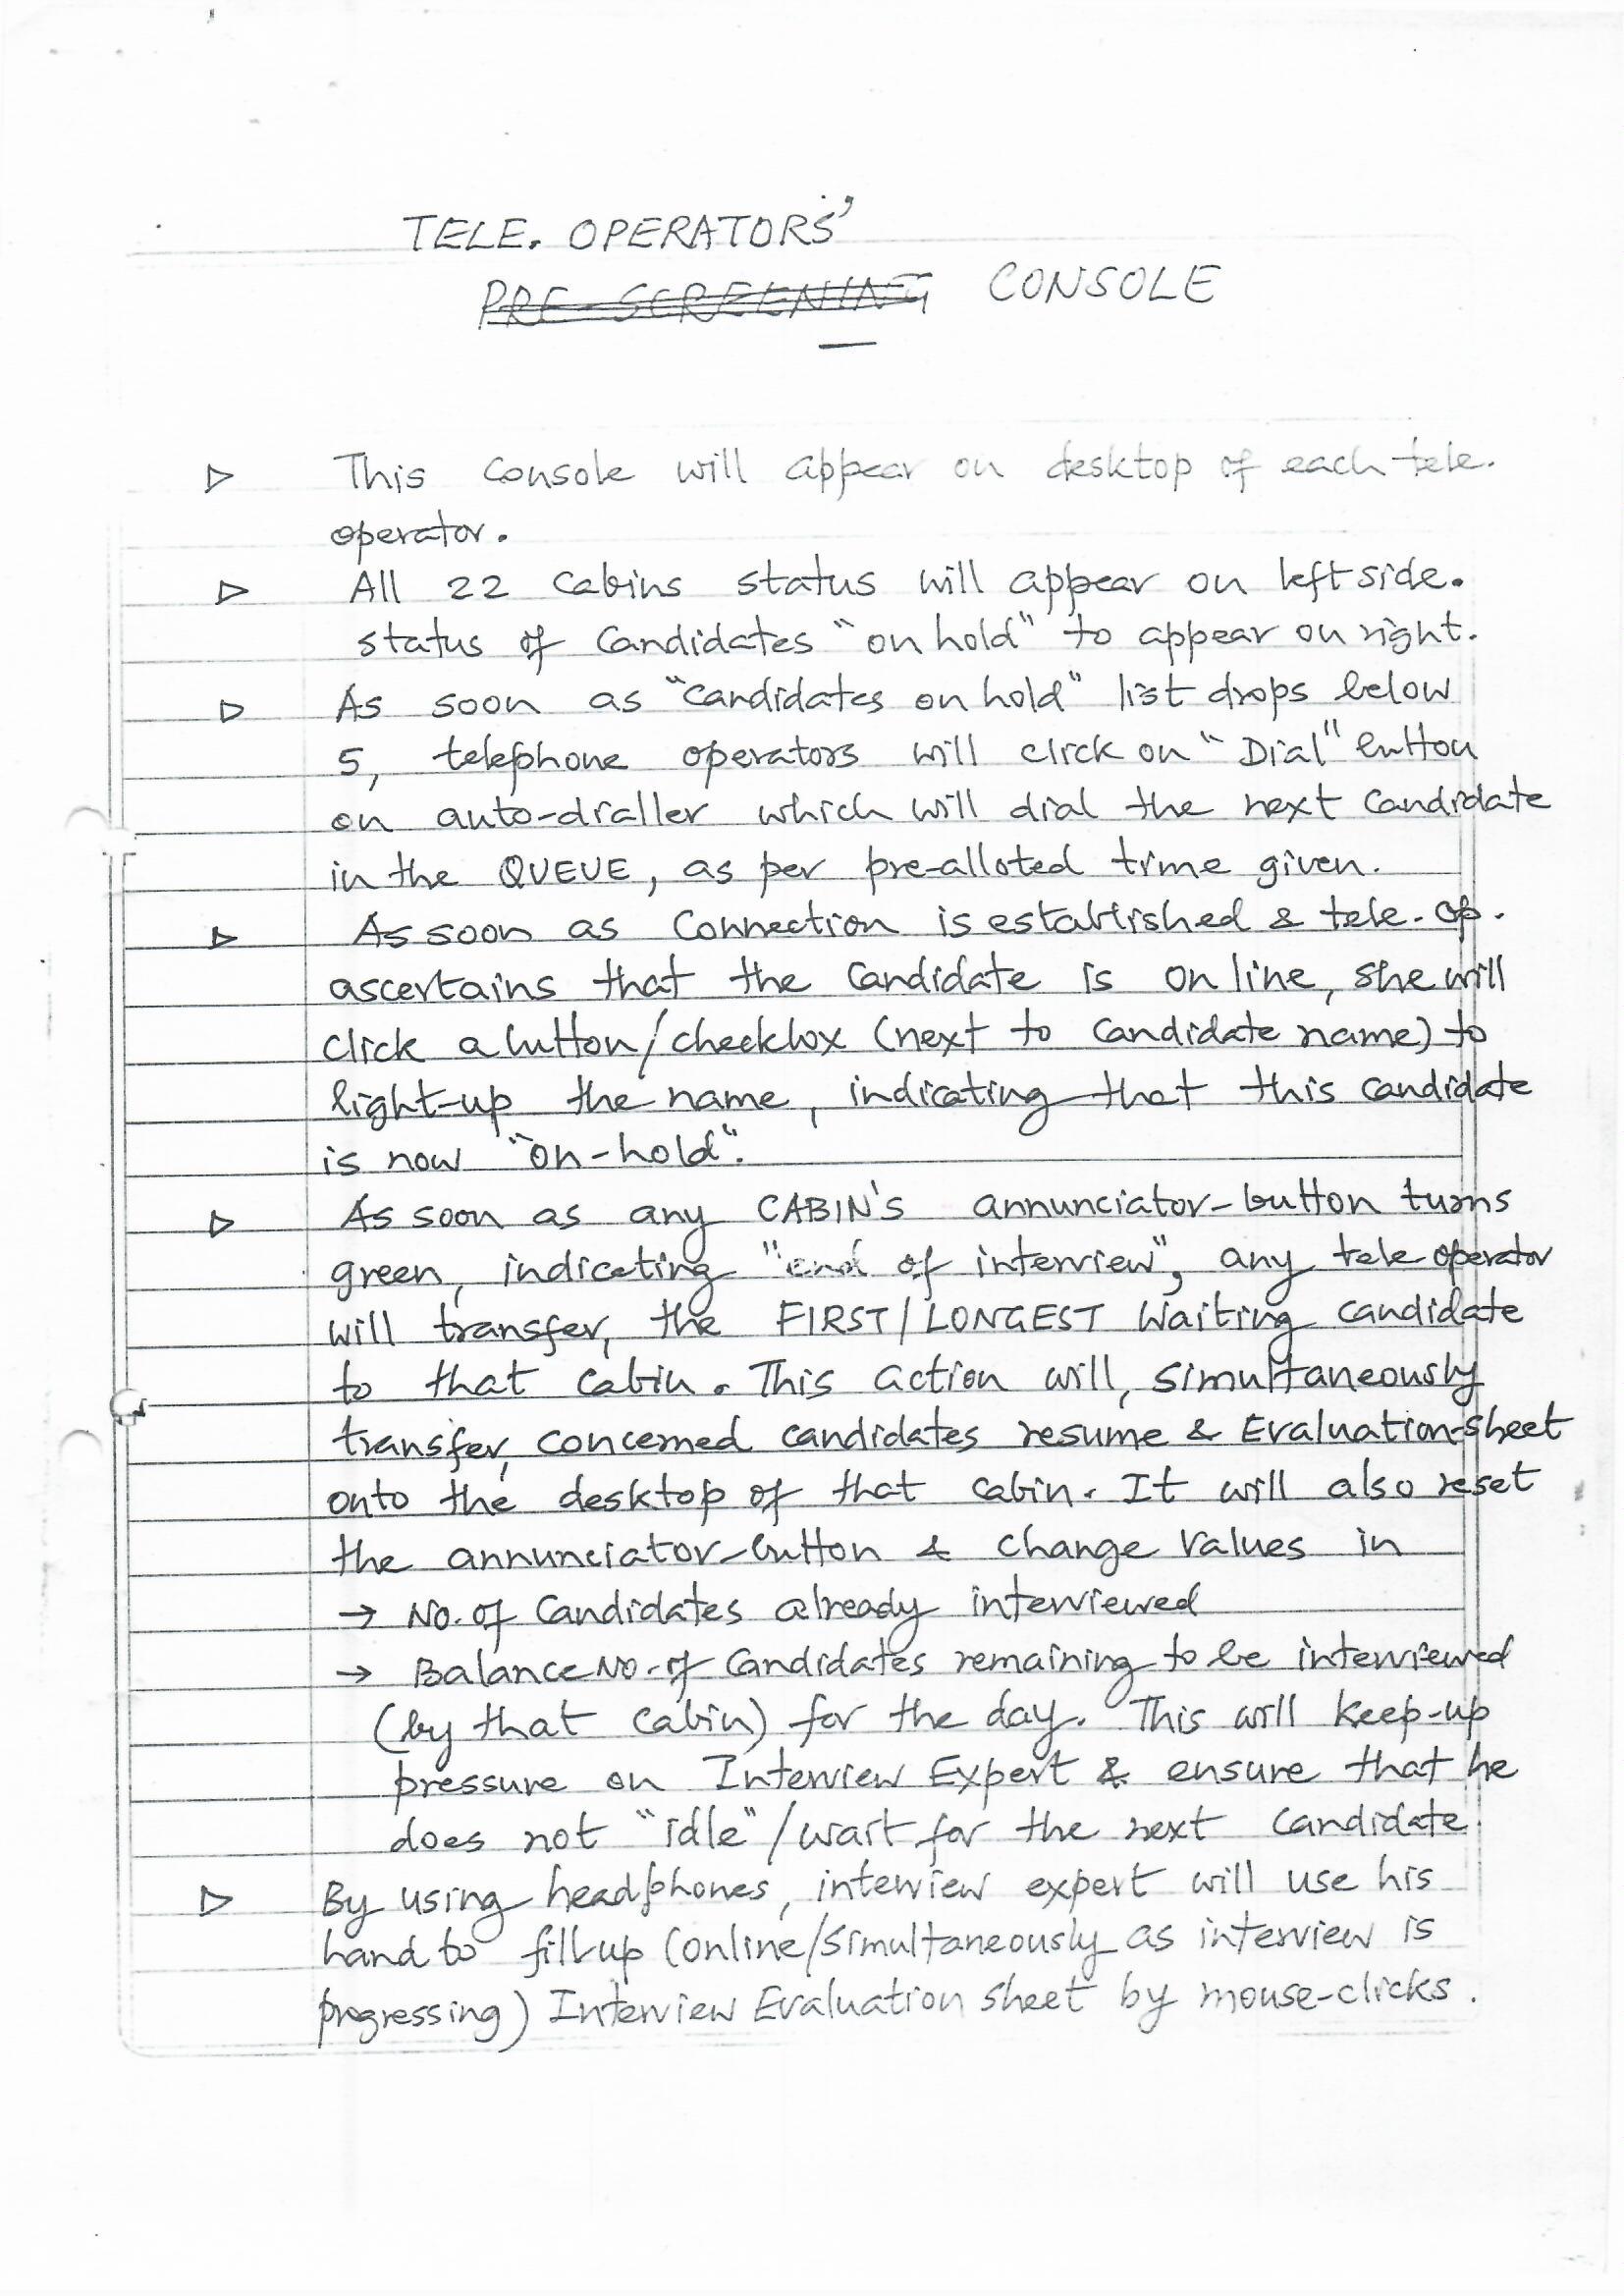 TELE. OPERATORS'
PRE-SCREENING CONSOLE
▷ This console will appear on desktop of each tele.
operator.
▷ All 22 cabins status will appear on left side.
status of candidates "on hold" to appear on right.
▷ As soon as "candidates on hold" list drops below
5, telephone operators will click on "Dial" button
on auto-dialler which will dial the next candidate
in the QUEUE, as per pre-alloted time given.
▷ As soon as connection is established & tele-op.
ascertains that the candidate is on line, she will
click a button/checkbox (next to candidate name) to
light-up the name, indicating that this candidate
is now "on-hold".
▷ As soon as any CABIN'S annunciator-button turns
green, indicating "end of interview", any tele operator
will transfer, the FIRST/LONGEST Waiting candidate
to that cabin. This action will, simultaneously
transfer, concerned candidates resume & Evaluation-sheet
onto the desktop of that cabin. It will also reset
the annunciator-button & change values in
→ No. of Candidates already interviewed
→ Balance No. of Candidates remaining to be interviewed
(by that cabin) for the day. This will keep-up
pressure on Interview Expert & ensure that he
does not "idle"/wait for the next candidate.
▷ By using headphones, interview expert will use his
hand to fill-up (online/simultaneously as interview is
progressing) Interview Evaluation sheet by mouse-clicks.